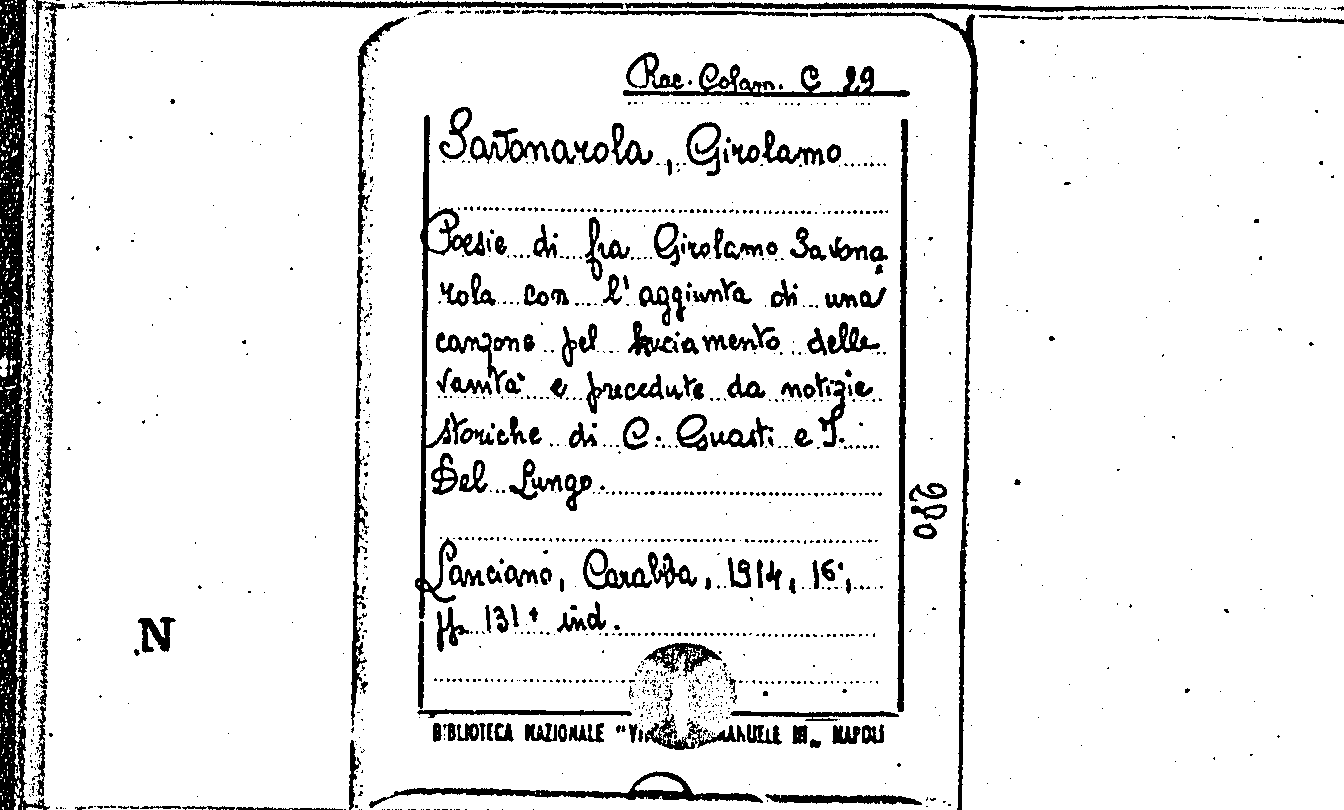 Rac. Colam. C 29
Savonarola, Girolamo
Poesie di fra Girolamo Savona
rola con l'aggiunta di una
canzone pel bruciamento delle
vanità e precedute da notizie
storiche di C. Guasti e I.
Del Lungo.
Lanciano, Carabba, 1914, 16°,
pp. 131 + ind.
280
N
BIBLIOTECA NAZIONALE "VI MANUELE III„ NAPOLI